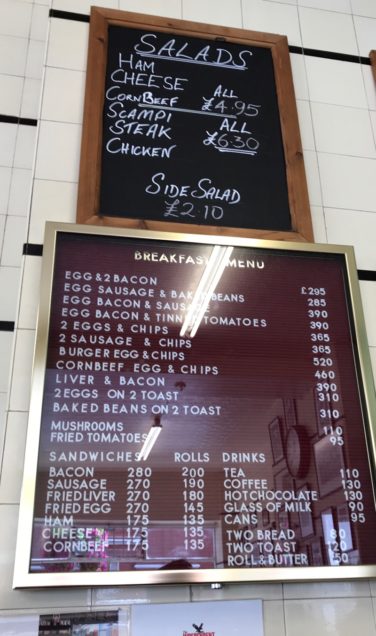 SALADS
HAM
CHEESE ALL
CORNBEEF £4.95
SCAMPI
STEAK ALL
CHICKEN £6.30
SIDE SALAD
£2.10
BREAKFAST MENU
EGG & 2 BACON £295
EGG SAUSAGE & BAKED BEANS 285
EGG BACON & SAUSAGE 390
EGG BACON & TINNED TOMATOES 390
2 EGGS & CHIPS 365
2 SAUSAGE & CHIPS 365
BURGER EGG & CHIPS 520
CORNBEEF EGG & CHIPS 460
LIVER & BACON 390
2 EGGS ON 2 TOAST 310
BAKED BEANS ON 2 TOAST 310
MUSHROOMS 110
FRIED TOMATOES 95
SANDWICHES ROLLS DRINKS
BACON 280 200 TEA 110
SAUSAGE 270 190 COFFEE 130
FRIED LIVER 270 180 HOT CHOCOLATE 130
FRIED EGG 270 145 GLASS OF MILK 90
HAM 175 135 CANS 95
CHEESE 175 135 TWO BREAD 80
CORNBEEF 175 135 TWO TOAST 120
ROLL & BUTTER 50
INDEPENDENT